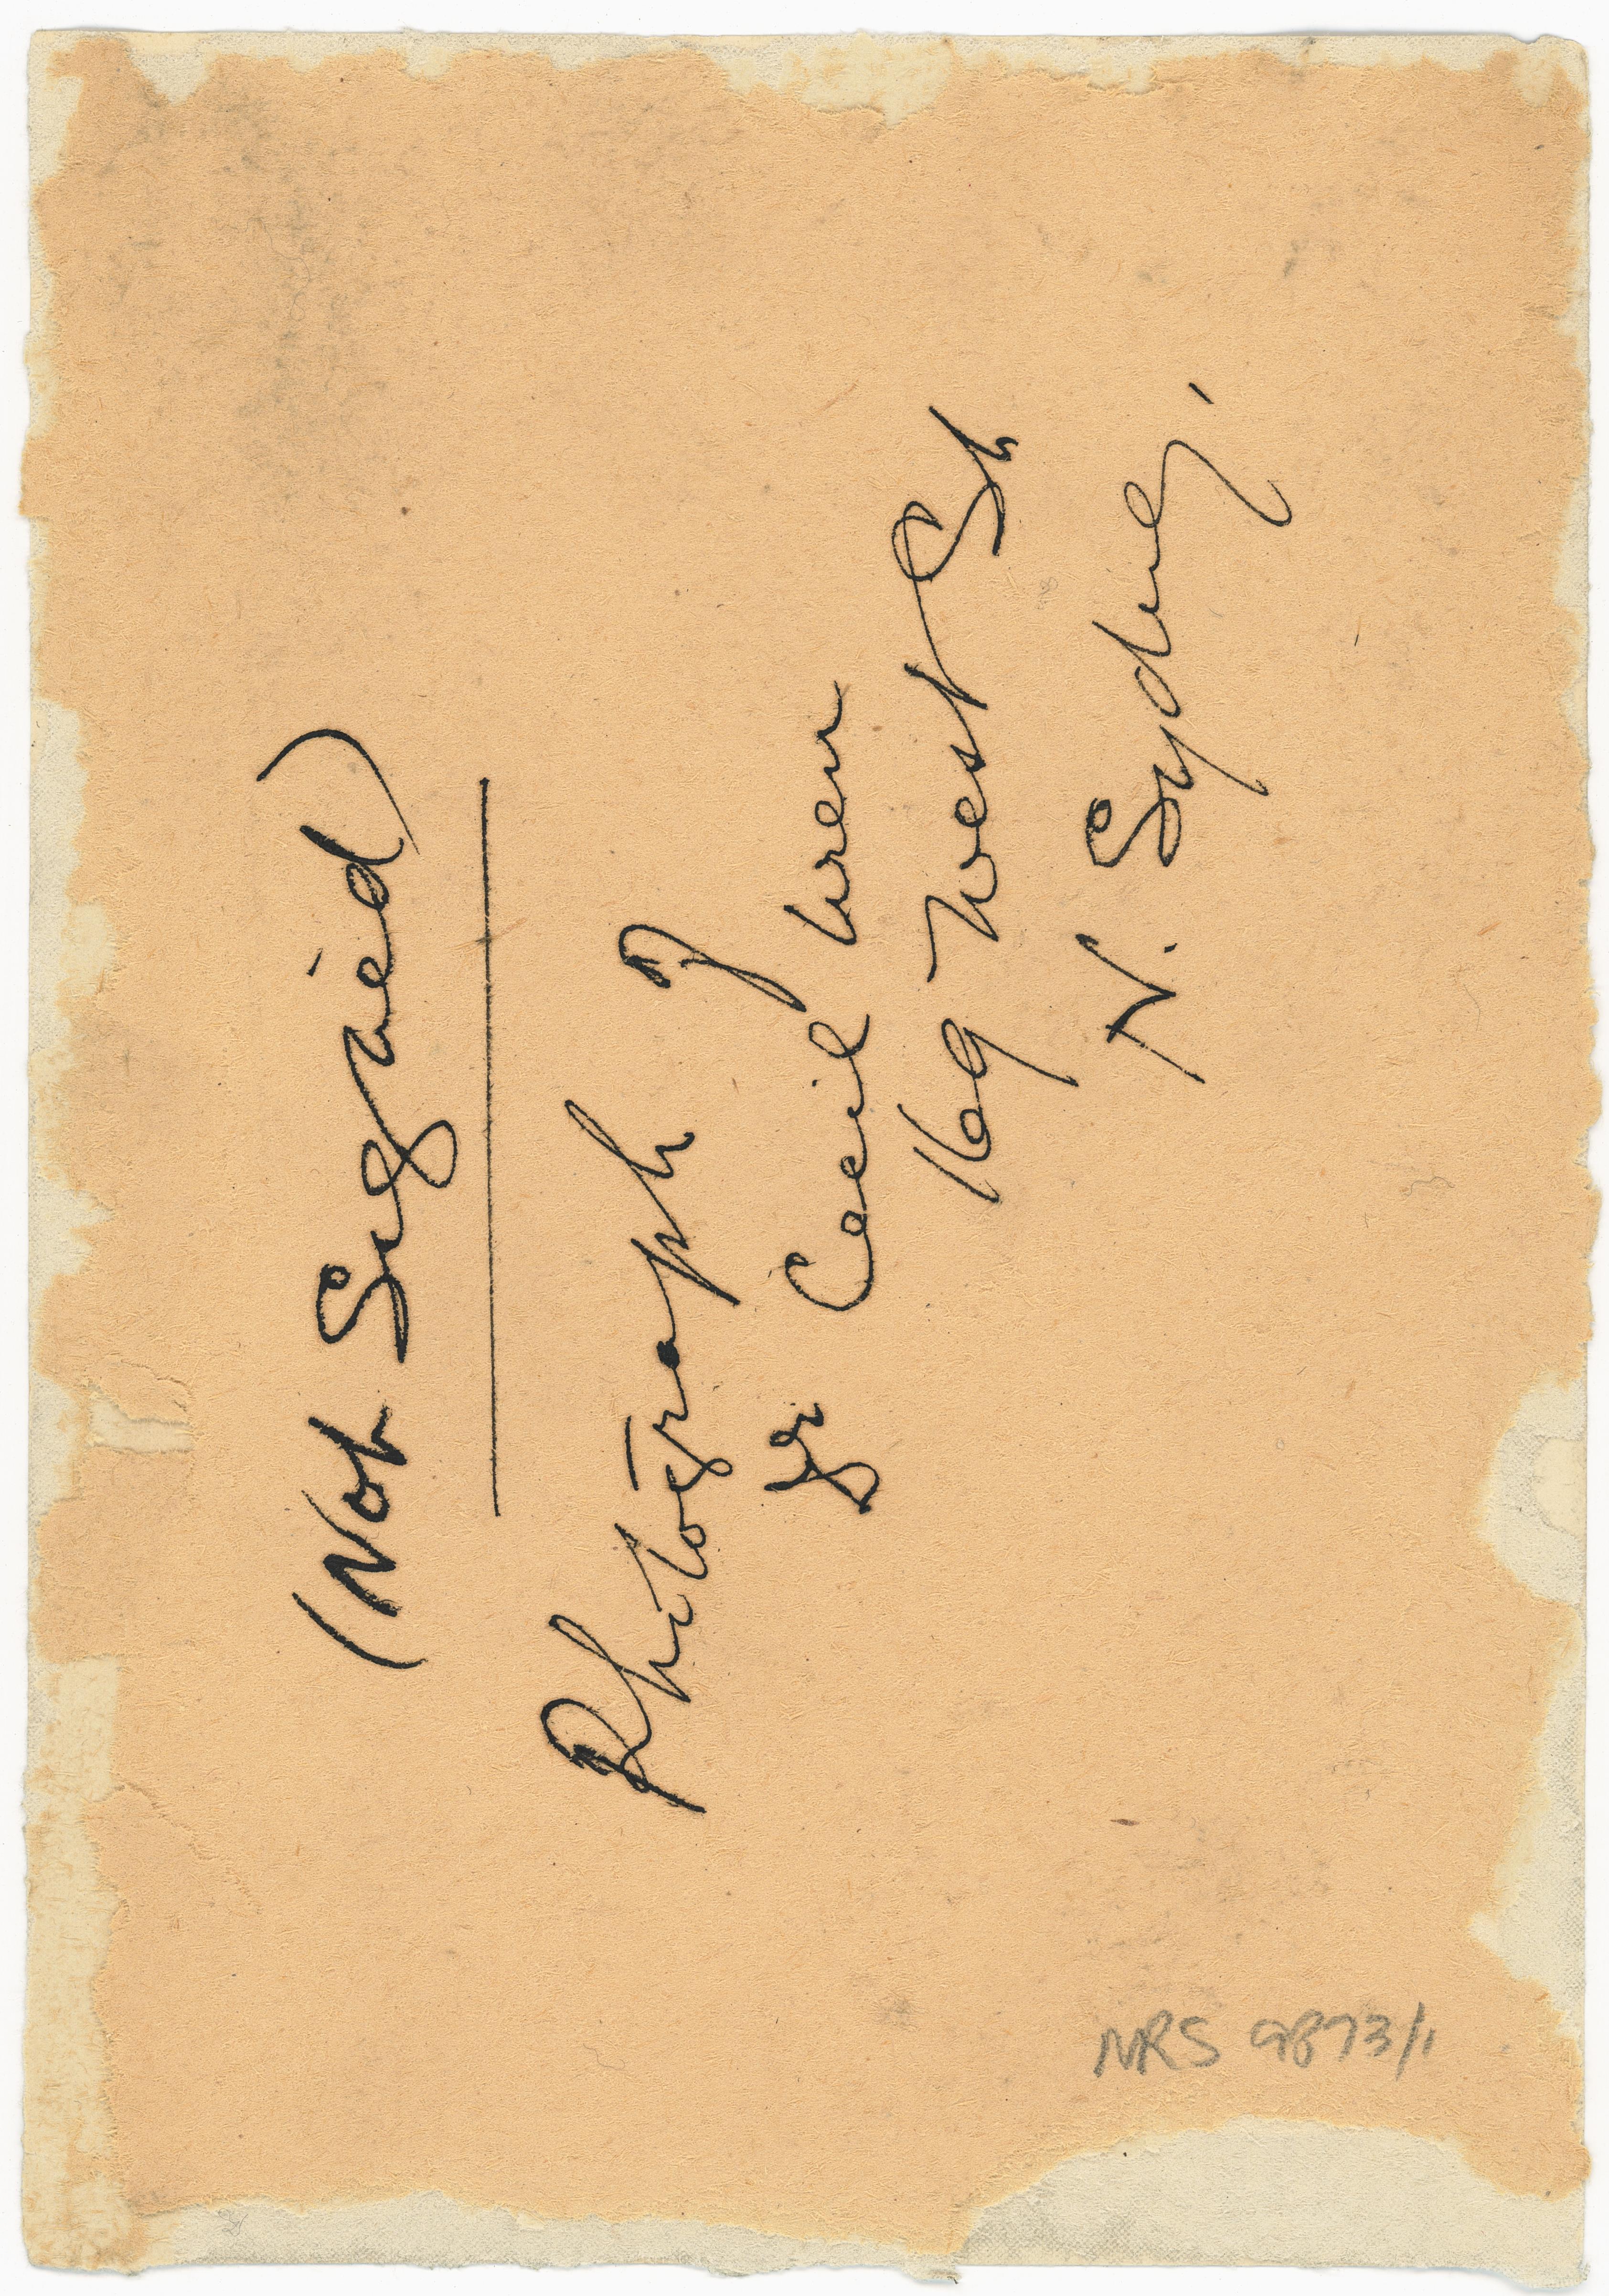 (Not Signed)
Photograph of
Cecil Wren
169 West St
N. Sydney.
NRS 9873/1